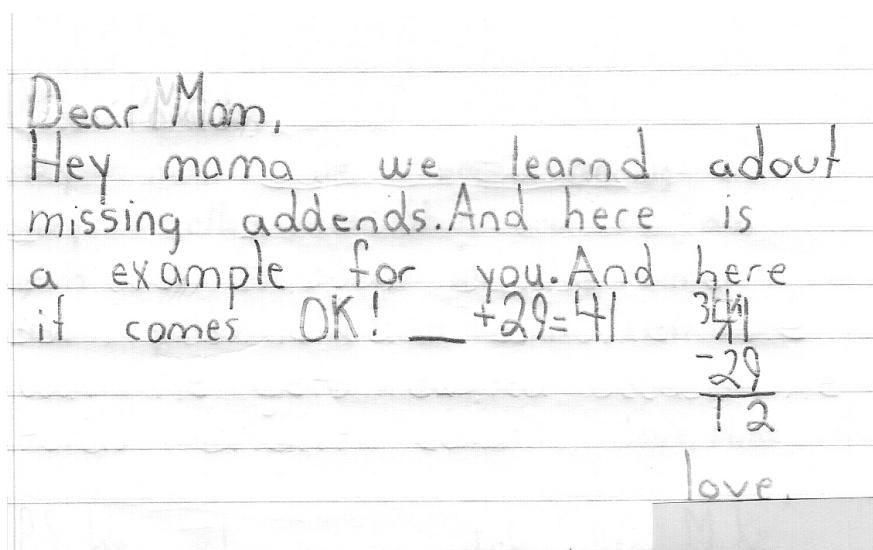 Dear Mom,
Hey mama we learnd adout
missing addends. And here is
a example for you. And here
it comes OK! __ +29=41 41
-29
12
love,